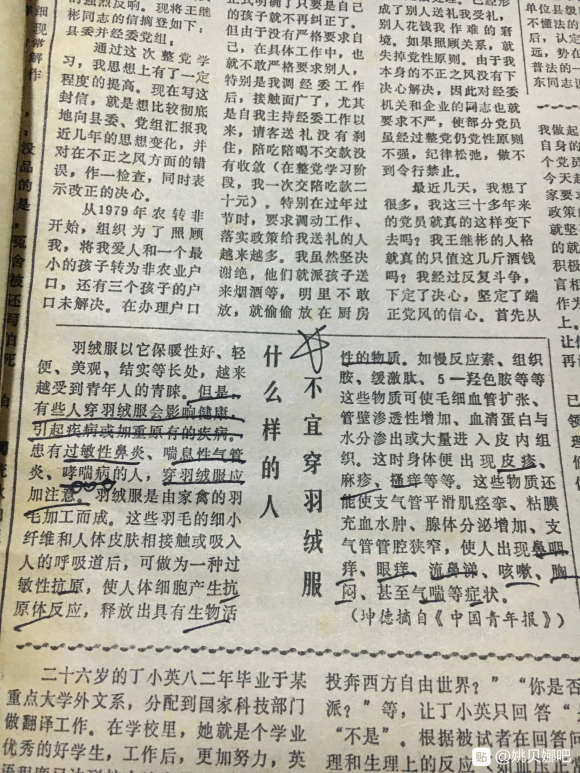 的强烈反响。现将王继
彬同志的信摘登如下：
县委并经委党组：
通过这次整党学
习，我思想上有了一定
程度的提高。现在写这
封信，就是想比较彻底
地向县委、党组汇报我
近几年的思想变化，并
对在不正之风方面的错
误，作一检查，同时表
示改正的决心。
从1979年农转非
开始，组织为了照顾
我，将我爱人和一个最
小的孩子转为非农业户
口，还有三个孩子的户
口未解决。在办理户口
的孩子就不再纠正了。
但由于没有严格要求自
己，在具体工作中，也
就不敢严格要求别人，
特别是我调经委工作
后，接触面广了，尤其
是自我主持经委工作以
来，请客送礼没有刹
住，陪吃陪喝不交款没
有收敛（在整党学习阶
段，我一次交陪吃款二
十元）。特别在过年过
节时，要求调动工作、
落实政策给我送礼的人
越来越多。我虽然坚决
谢绝，他们就派孩子送
来烟酒等，明里不敢
放，就偷偷放在厨房
成了别人送礼我受礼，
别人花钱我作难的窘
境。如果照顾关系，就
失掉党性原则。由于我
本身的不正之风没有下
决心解决，因此对经委
机关和企业的同志也就
要求不严，使部分党员
虽经过整党仍党性原则
不强，纪律松弛，做不
到令行禁止。
最近几天，我想了
很多，我这三十多年来
的党员就真的这样变下
去吗？我王继彬的人格
就真的只值这几斤酒钱
吗？我经过反复斗争，
下定了决心，坚定了端
正党风的信心。首先从
什么样的人
不宜穿羽绒服
羽绒服以它保暖性好、轻
便、美观、结实等长处，越来
越受到青年人的青睐。但是，
有些人穿羽绒服会影响健康，
引起疾病或加重原有的疾病。
患有过敏性鼻炎、喘息性气管
炎、哮喘病的人，穿羽绒服应
加注意。羽绒服是由家禽的羽
毛加工而成。这些羽毛的细小
纤维和人体皮肤相接触或吸入
人的呼吸道后，可做为一种过
敏性抗原，使人体细胞产生抗
原体反应，释放出具有生物活
性的物质。如慢反应素、组织
胺、缓激肽、5—羟色胺等等
这些物质可使毛细血管扩张、
管壁渗透性增加、血清蛋白与
水分渗出或大量进入皮内组
织。这时身体便出现皮疹、
麻疹、搔痒等等。这些物质还
能使支气管平滑肌痉挛、粘膜
充血水肿、腺体分泌增加、支
气管管腔狭窄，使人出现鼻咽
痒、眼痒、流鼻涕、咳嗽、胸
闷、甚至气喘等症状。
（坤德摘自《中国青年报》）
二十六岁的丁小英八二年毕业于某
重点大学外文系，分配到国家科技部门
做翻译工作。在学校里，她就是个学业
优秀的好学生，工作后，更加努力，英
投奔西方自由世界？”“你是否
派？”等，让丁小英只回答“是
“不是”。根据被试者在回答问
理和生理上的反应
贴 @姚贝娜吧